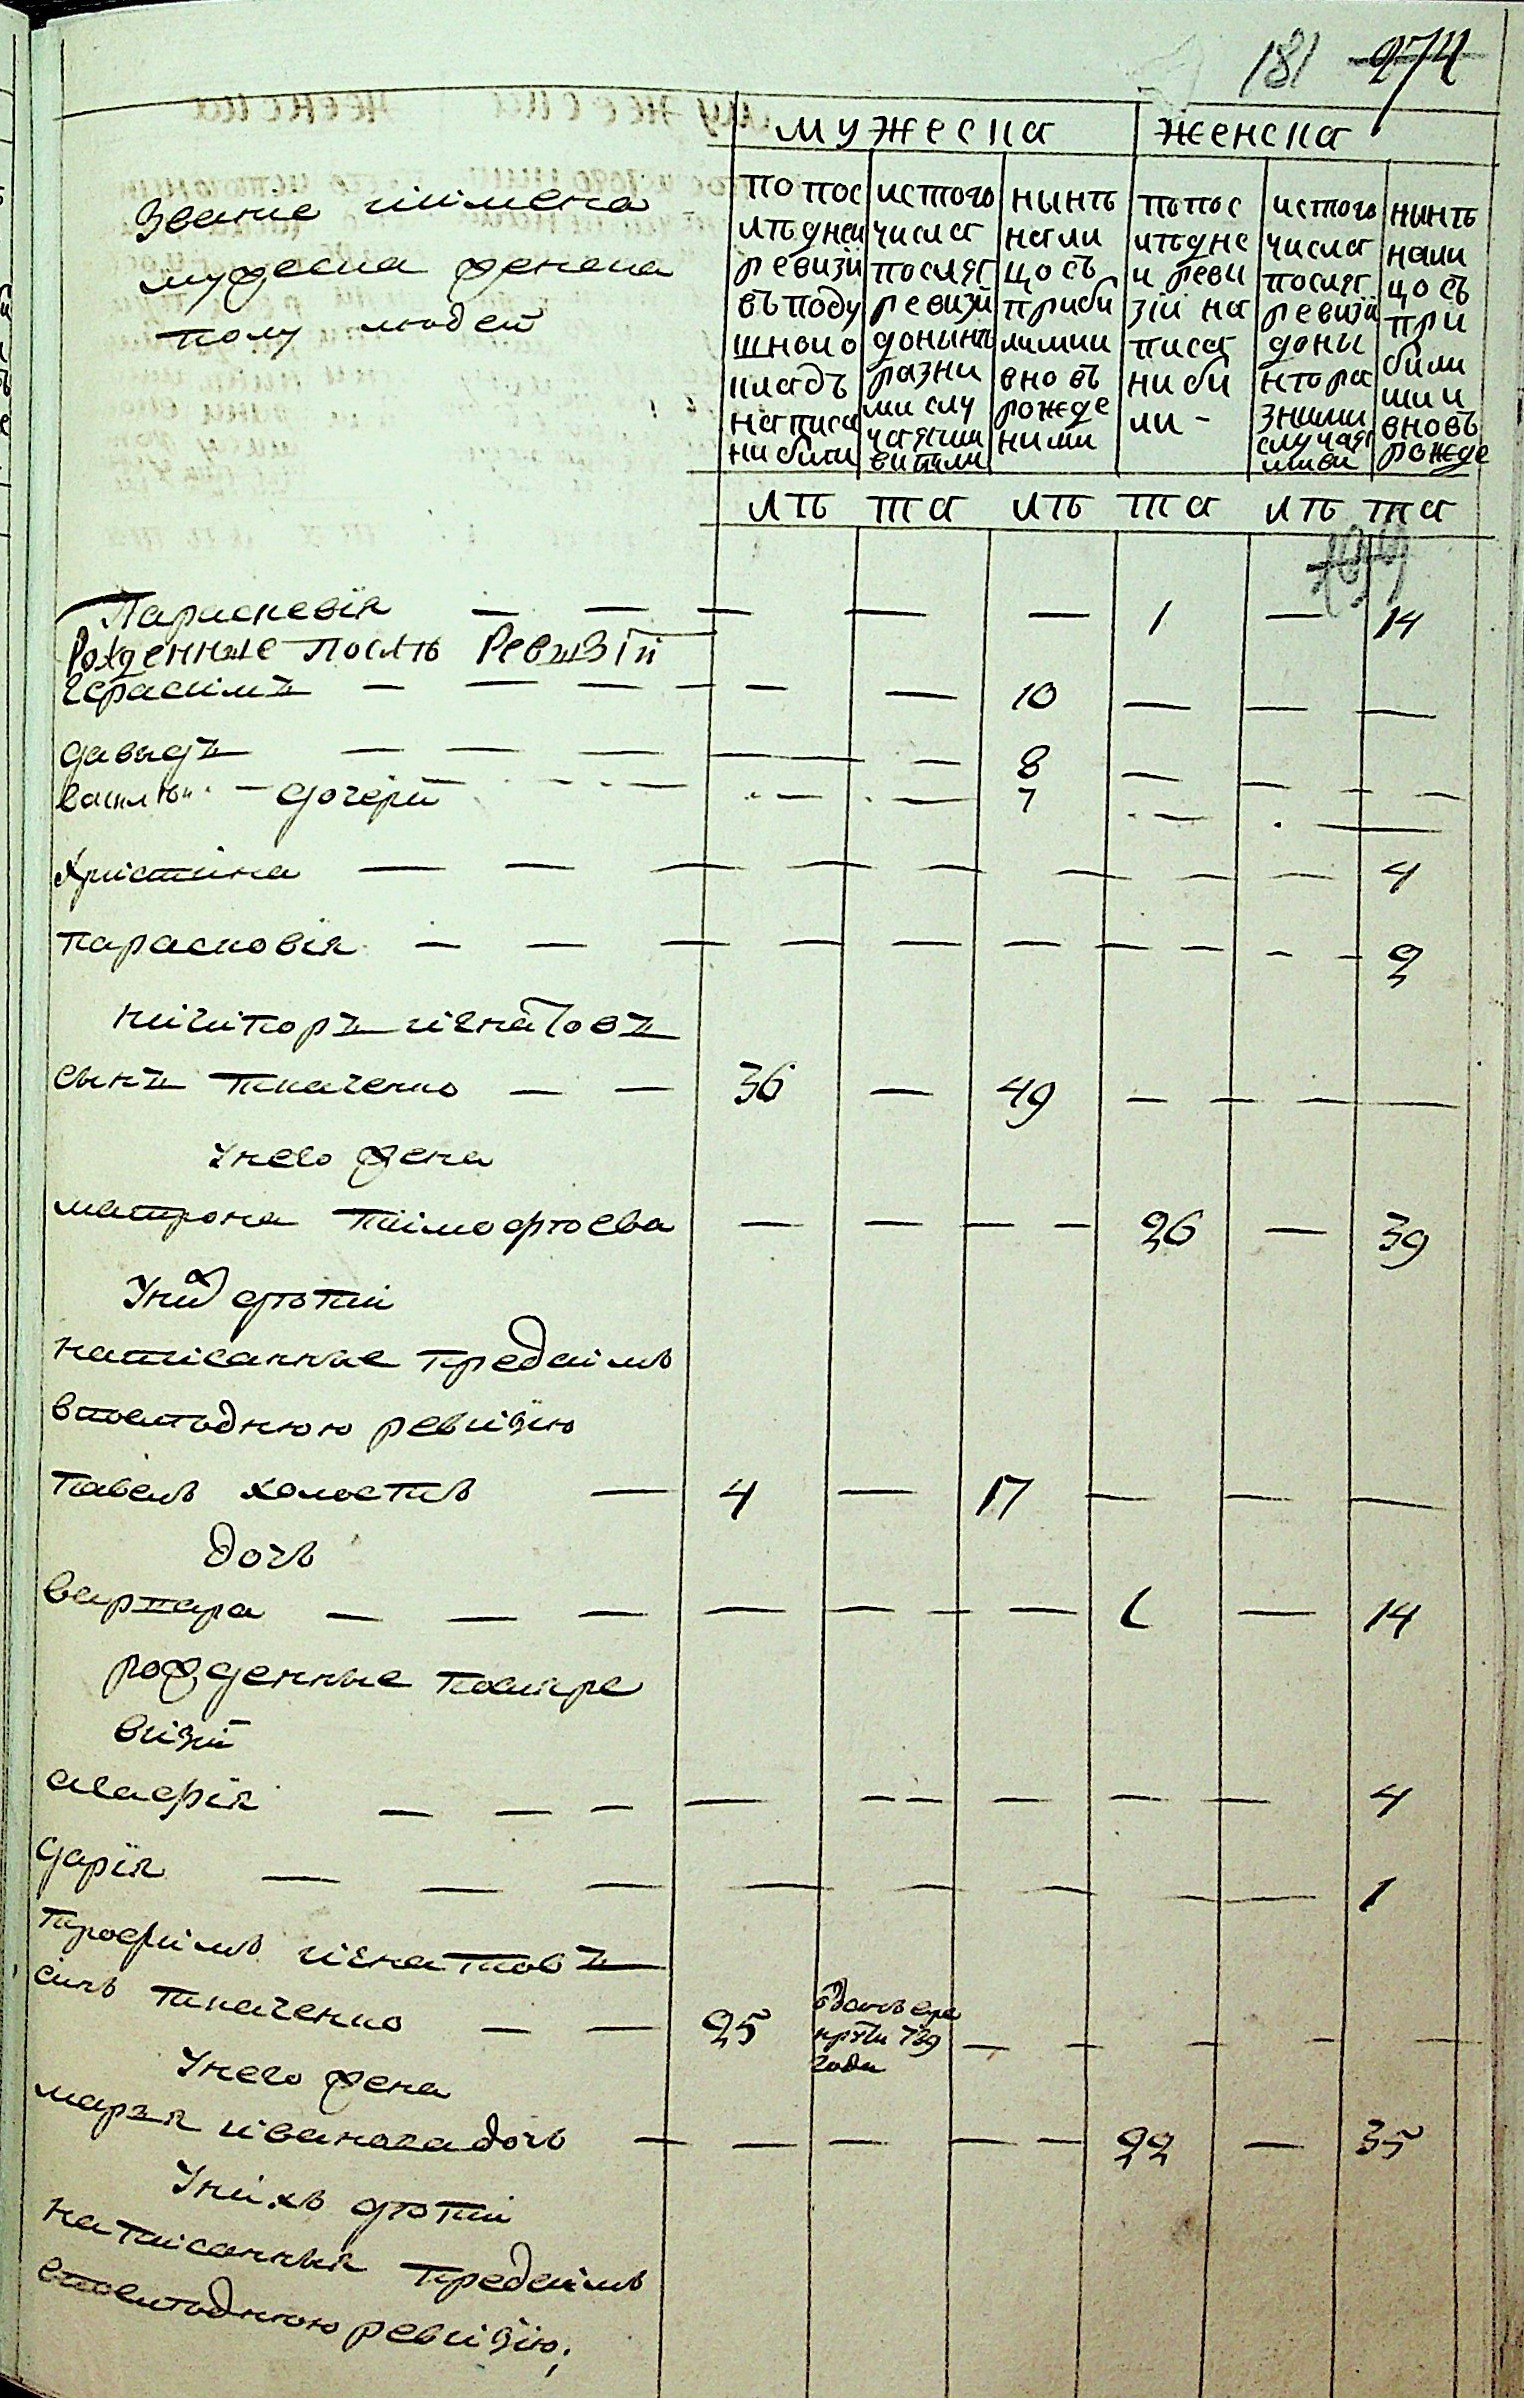 181 274
мужеска женска
Звание иимена
мужеска женска
полу людей
по пос
лѣдней
ревизи
въ поду
шной о
кладъ
написа
ни били
истого
числа
послѣ
ревизи
донынѣ
разни
ми слу
чаями
вибили
нынѣ
нали
цо съ
приби
лими и
вновъ
рожде
ними
по пос
лѣдне
и реви
зіи на
писа
ни би
ли -
истого
числа
послѣ
ревизіи
доны
нѣ ра
зними
случая
нынѣ
нали
цо съ
при
били
ми и
вновъ
рожде
лѣ та лѣ та лѣ та
Параскевія — — — — — 1 — 14
Рожденные послѣ Ревизіи
Герасимъ — — — — — — 10 — — —
давыдъ — — — — — 8 — — — —
василь — дочери — — — 7 — —
Христина — — — — — — — — 4
парасковія — — — — — — — — — — 9
ничипоръ игнатовъ
сынъ ткаченко — — 36 — 49 — — — —
Унего жена
матрона тимофѣева — — — — 26 — 39
Унихъ дѣти
написанные предсимъ
впослѣднюю ревизію
павелъ холостъ — 4 — 17 — — —
дочь
варвара — — — — — — — 1 — 14
рожденные послѣ ре
визіи
агафія — — — — — — — — — 4
дарія — — — — — — — — 1
трофимъ игнатовъ
синъ ткаченко — — 25
789
года
— — — — —
Унего жена
марія иванова дочь — — — — — 22 — 35
Унихъ дѣти
написанныя предсимъ
впослѣднюю ревизію;